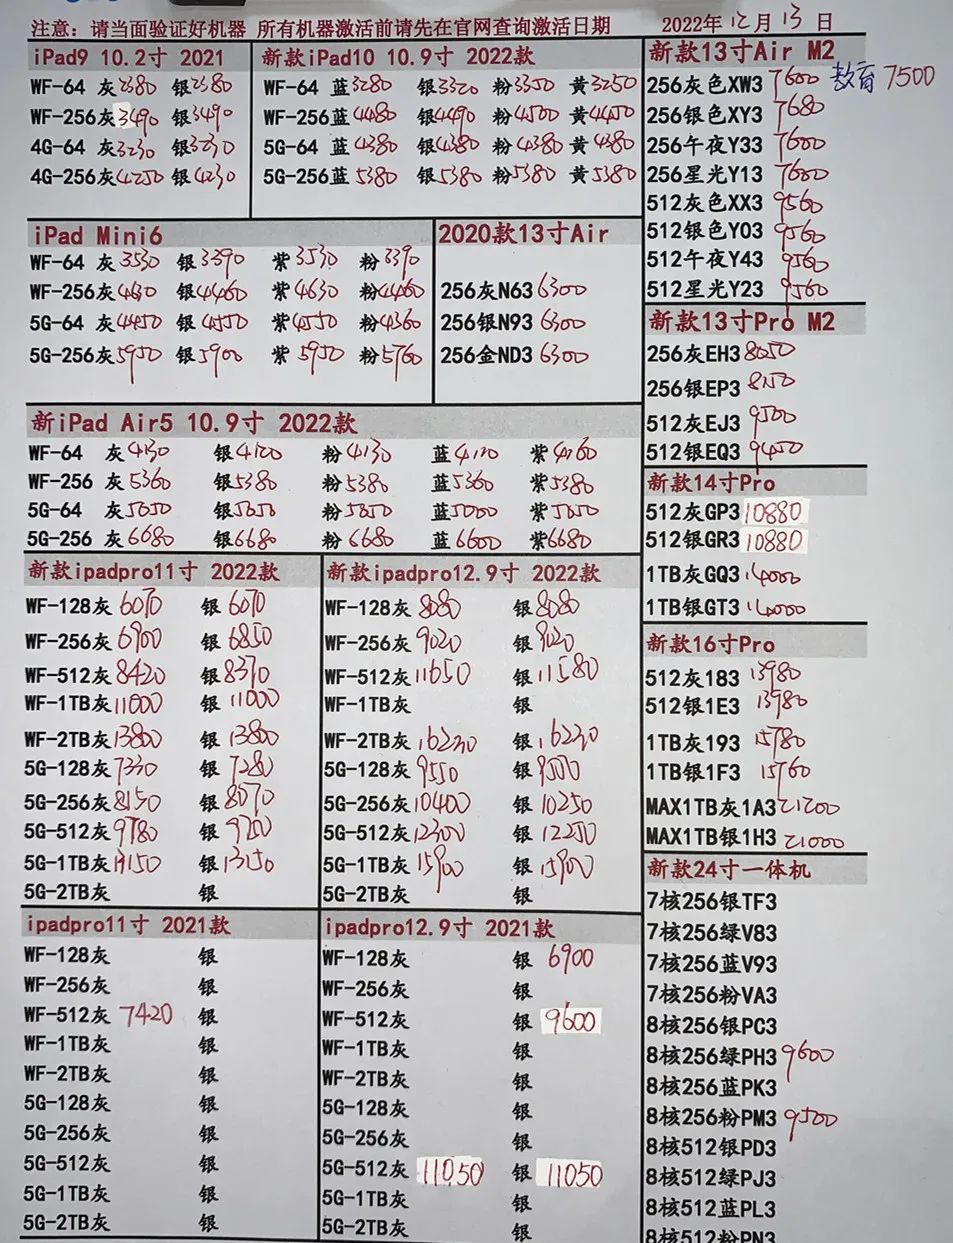 注意：请当面验证好机器 所有机器激活前请先在官网查询激活日期 2022年12月13日
iPad9 10.2寸 2021
WF-64 灰2380 银2380
WF-256灰3490 银3490
4G-64 灰3230 银3230
4G-256灰4250 银4230
新款iPad10 10.9寸 2022款
WF-64 蓝3280 银3320 粉3350 黄3250
WF-256蓝4480 银4490 粉4500 黄4450
5G-64 蓝4380 银4380 粉4380 黄4380
5G-256蓝5380 银5380 粉5380 黄5380
iPad Mini6
WF-64 灰3530 银3390 紫3530 粉3390
WF-256灰4630 银4460 紫4630 粉4460
5G-64 灰4450 银4550 紫4550 粉4360
5G-256灰5950 银5900 紫5950 粉5760
2020款13寸Air
256灰N63 6300
256银N93 6300
256金ND3 6300
新iPad Air5 10.9寸 2022款
WF-64 灰4130 银4100 粉4130 蓝4120 紫4160
WF-256 灰5360 银5380 粉5380 蓝5360 紫5380
5G-64 灰5050 银5050 粉5050 蓝5000 紫5050
5G-256 灰6680 银6680 粉6680 蓝6600 紫6680
新款ipadpro11寸 2022款
WF-128灰 6070 银 6070
WF-256灰 6900 银 6850
WF-512灰 8420 银 8370
WF-1TB灰11000 银 11000
WF-2TB灰13800 银 13800
5G-128灰7330 银 7280
5G-256灰8150 银 8070
5G-512灰9780 银 9700
5G-1TB灰13150 银13150
5G-2TB灰 银
新款ipadpro12.9寸 2022款
WF-128灰 8080 银8080
WF-256灰 9020 银9020
WF-512灰11650 银11580
WF-1TB灰 银
WF-2TB灰16230 银16230
5G-128灰9550 银9500
5G-256灰10400 银10250
5G-512灰12300 银12250
5G-1TB灰15900 银15900
5G-2TB灰 银
ipadpro11寸 2021款
WF-128灰 银
WF-256灰 银
WF-512灰 7420 银
WF-1TB灰 银
WF-2TB灰 银
5G-128灰 银
5G-256灰 银
5G-512灰 银
5G-1TB灰 银
5G-2TB灰 银
ipadpro12.9寸 2021款
WF-128灰 银 6900
WF-256灰 银
WF-512灰 银 9600
WF-1TB灰 银
WF-2TB灰 银
5G-128灰 银
5G-256灰 银
5G-512灰 11050 银 11050
5G-1TB灰 银
5G-2TB灰 银
新款13寸Air M2
256灰色XW3 7600 教育 7500
256银色XY3 7680
256午夜Y33 7600
256星光Y13 7600
512灰色XX3 9560
512银色Y03 9560
512午夜Y43 9560
512星光Y23 9560
新款13寸Pro M2
256灰EH3 8050
256银EP3 8150
512灰EJ3 9500
512银EQ3 9450
新款14寸Pro
512灰GP3 10880
512银GR3 10880
1TB灰GQ3 14000
1TB银GT3 14000
新款16寸Pro
512灰183 13980
512银1E3 13980
1TB灰193 15780
1TB银1F3 15760
MAX1TB灰1A3 21200
MAX1TB银1H3 21000
新款24寸一体机
7核256银TF3
7核256绿V83
7核256蓝V93
7核256粉VA3
8核256银PC3
8核256绿PH3 9600
8核256蓝PK3
8核256粉PM3 9500
8核512银PD3
8核512绿PJ3
8核512蓝PL3
8核512粉PN3